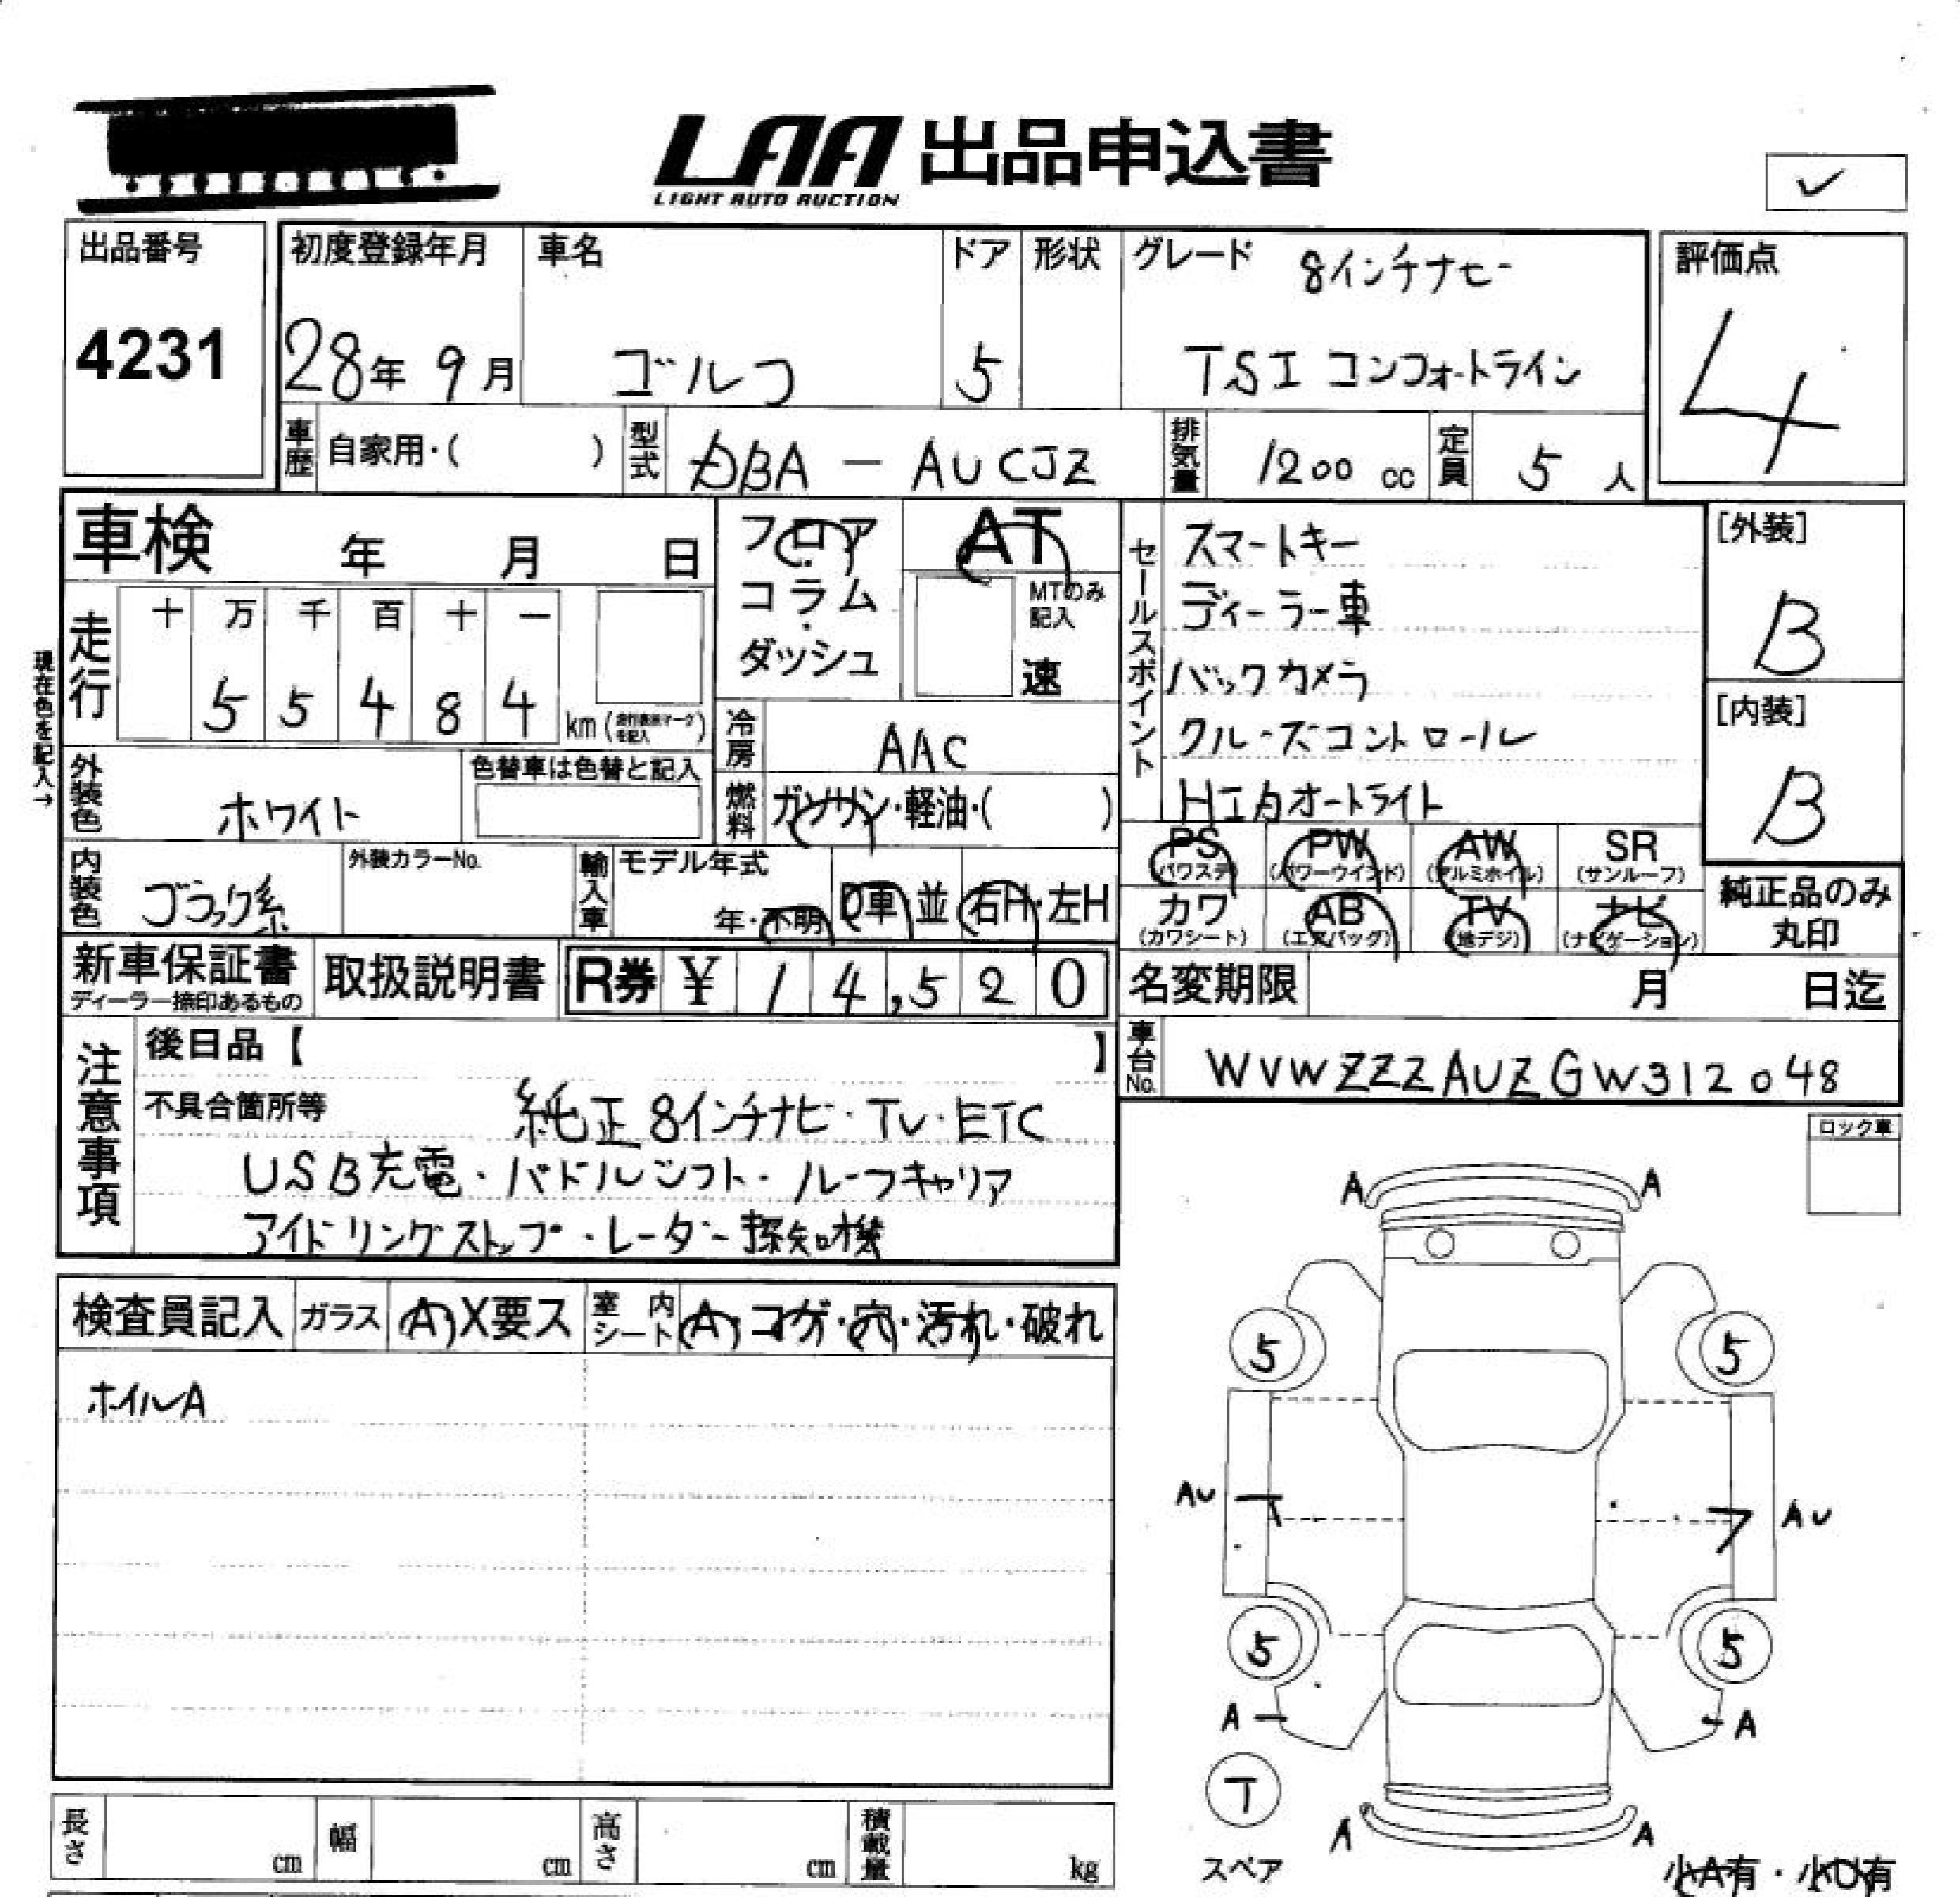 LAA 出品申込書
LIGHT AUTO AUCTION
✓
出品番号
4231
初度登録年月
28年 9月
車名
ゴルフ
ドア
5
形状
グレード 8インチナビ
TSI コンフォートライン
評価点
4
車歴 自家用・( )
型式 DBA - AUCJZ
排気量 1200 cc
定員 5 人
車検 年 月 日
フロア・コラム・ダッシュ
AT
MTのみ記入
速
セールスポイント
スマートキー
ディーラー車
バックカメラ
クルーズコントロール
HIDオートライト
[外装]
B
[内装]
B
現在色を記入→
走行
十 万 千 百 十 一
5 5 4 8 4 km (走行表示マークを記入)
冷房 AAC
燃料 ガソリン・軽油・( )
外装色 ホワイト
色替車は色替と記入
内装色 ブラック系
外装カラーNo.
輸入車 モデル年式
年・不明 D車 並 右H・左H
PS (パワステ) PW (パワーウインド) AW (アルミホイル) SR (サンルーフ)
カワ (カワシート) AB (エアバッグ) TV (地デジ) ナビ (ナビゲーション)
純正品のみ丸印
新車保証書
ディーラー捺印あるもの
取扱説明書
R券 ¥ 14,520
名変期限 月 日迄
車台No. WVWZZZAUZGW312048
注意事項
後日品【 】
不具合箇所等 純正8インチナビ・TV・ETC
USB充電・パドルシフト・ルーフキャリア
アイドリングストップ・レーダー探知機
ロック車
検査員記入 ガラス A X要ス 室内シート A・コゲ・穴・汚れ・破れ
ホイルA
A A
5 5
AU AU
5 5
A A
T
スペア
A A
小A有・小U有
長さ cm 幅 cm 高さ cm 積載量 kg